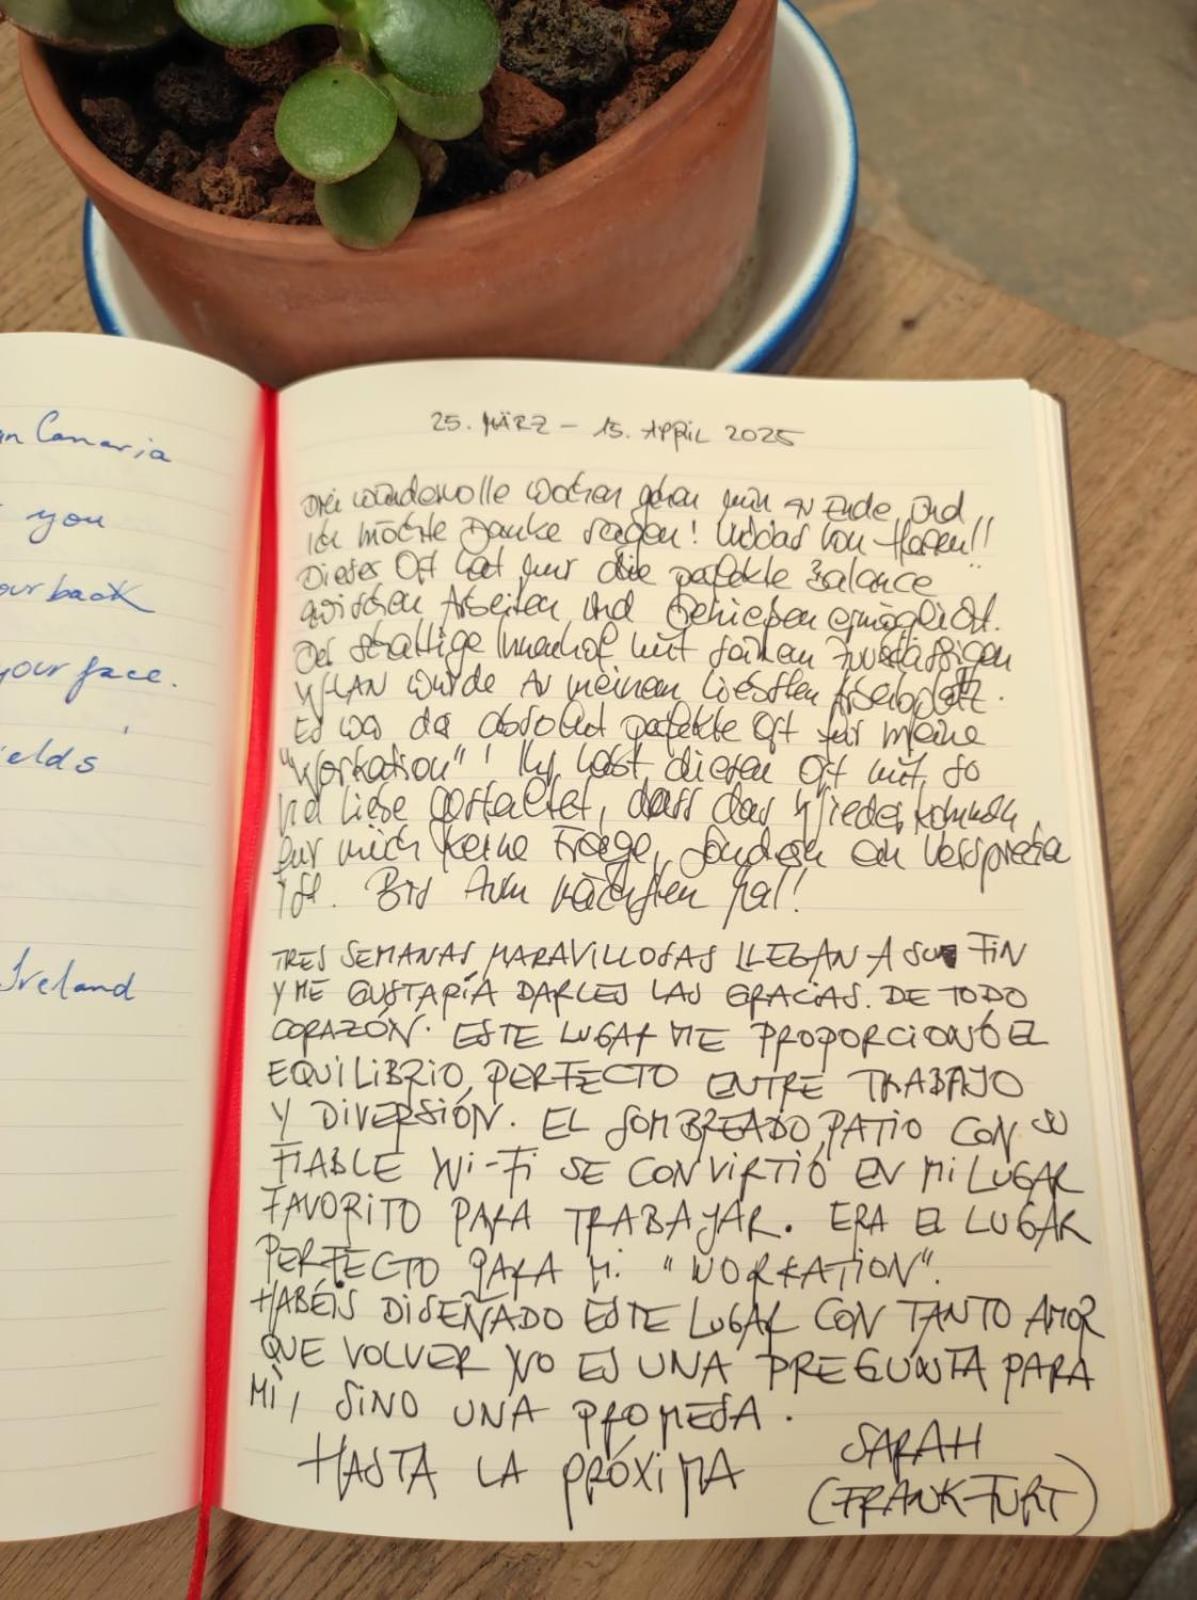 an Canaria
you
our back
your face.
ields
Ireland
25. MÄRZ – 15. APRIL 2025
Drei wundervolle Wochen gehen nun zu Ende und
ich möchte Danke sagen! von Herzen!!
Dieser Ort hat mir die perfekte Balance
zwischen Arbeiten und Genießen ermöglicht.
Der schattige Innenhof mit seinem zuverlässigen
WLAN wurde zu meinem liebsten Arbeitsplatz.
Es war der absolut perfekte Ort für meine
"Workation"! Ihr habt diesen Ort mit so
viel Liebe gestaltet, dass das Wiederkommen
für mich keine Frage, sondern ein Versprechen
ist. Bis zum nächsten Mal!
TRES SEMANAS MARAVILLOSAS LLEGAN A SU FIN
Y ME GUSTARÍA DARLES LAS GRACIAS. DE TODO
CORAZÓN. ESTE LUGAR ME PROPORCIONÓ EL
EQUILIBRIO PERFECTO ENTRE TRABAJO
Y DIVERSIÓN. EL SOMBREADO PATIO CON SU
FIABLE WI-FI SE CONVIRTIÓ EN MI LUGAR
FAVORITO PARA TRABAJAR. ERA EL LUGAR
PERFECTO PARA MI "WORKATION".
HABÉIS DISEÑADO ESTE LUGAR CON TANTO AMOR
QUE VOLVER NO ES UNA PREGUNTA PARA
MÌ, SINO UNA PROMESA.
HASTA LA PRÓXIMA
SARAH
(FRANKFURT)